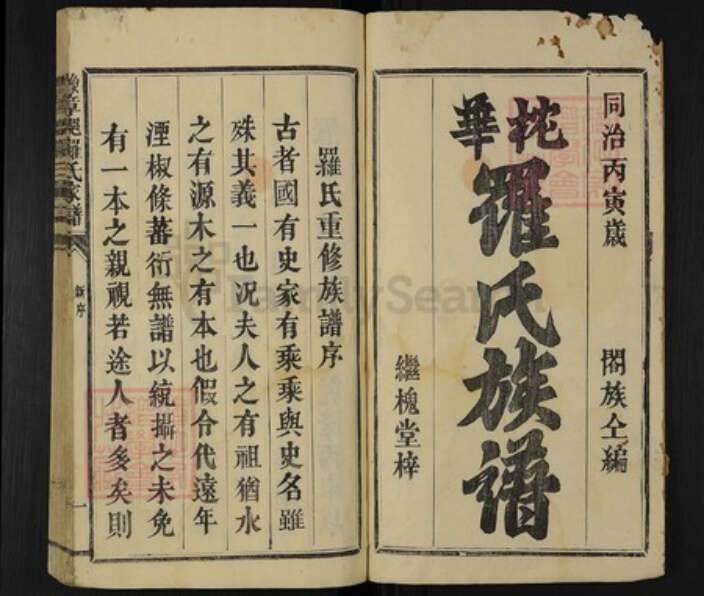 同治丙寅歲 閤族仝編
柁華
羅氏族譜
繼槐堂梓
羅氏重修族譜序
古者國有史家有乘乘與史名雖
殊其義一也況夫人之有祖猶水
之有源木之有本也假令代遠年
湮椒條蕃衍無譜以統攝之未免
有一本之親視若途人者多矣則
氏家譜
序
一
FamilySearch